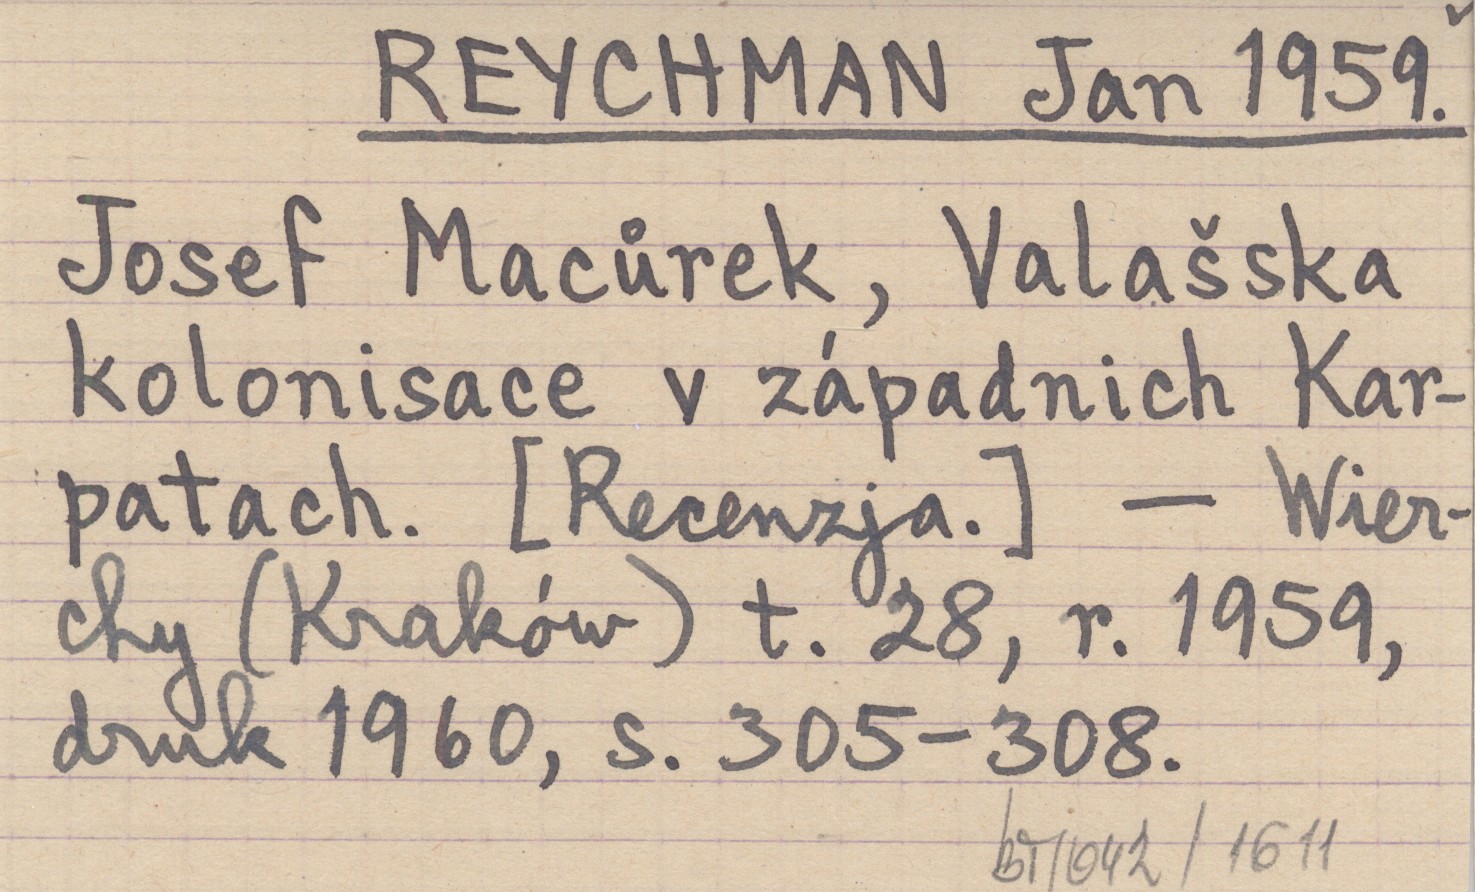 REYCHMAN Jan 1959.
Josef Macůrek, Valašska
kolonisace v západnich Kar-
patach. [Recenzja.] — Wier-
chy (Kraków) t. 28, r. 1959,
druk 1960, s. 305-308.
/ 1611